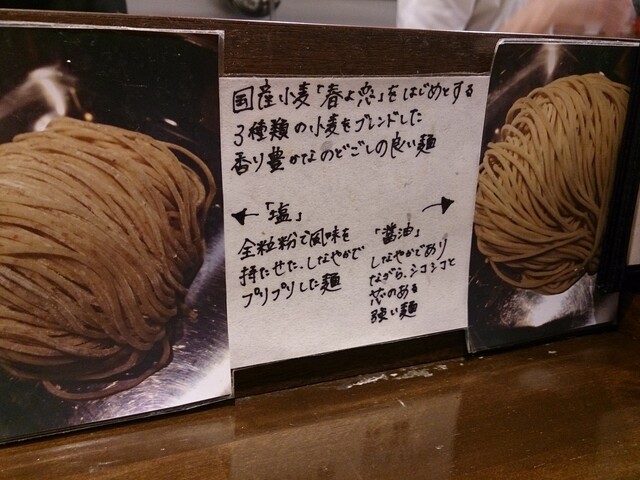 国産小麦「春よ恋」をはじめとする
3種類の小麦をブレンドした
香り豊かなのどごしの良い麺
←「塩」
全粒粉で風味を
持たせた、しなやかで
プリプリした麺
→
「醤油」
しなやかであり
ながら、シコシコと
芯のある
強い麺